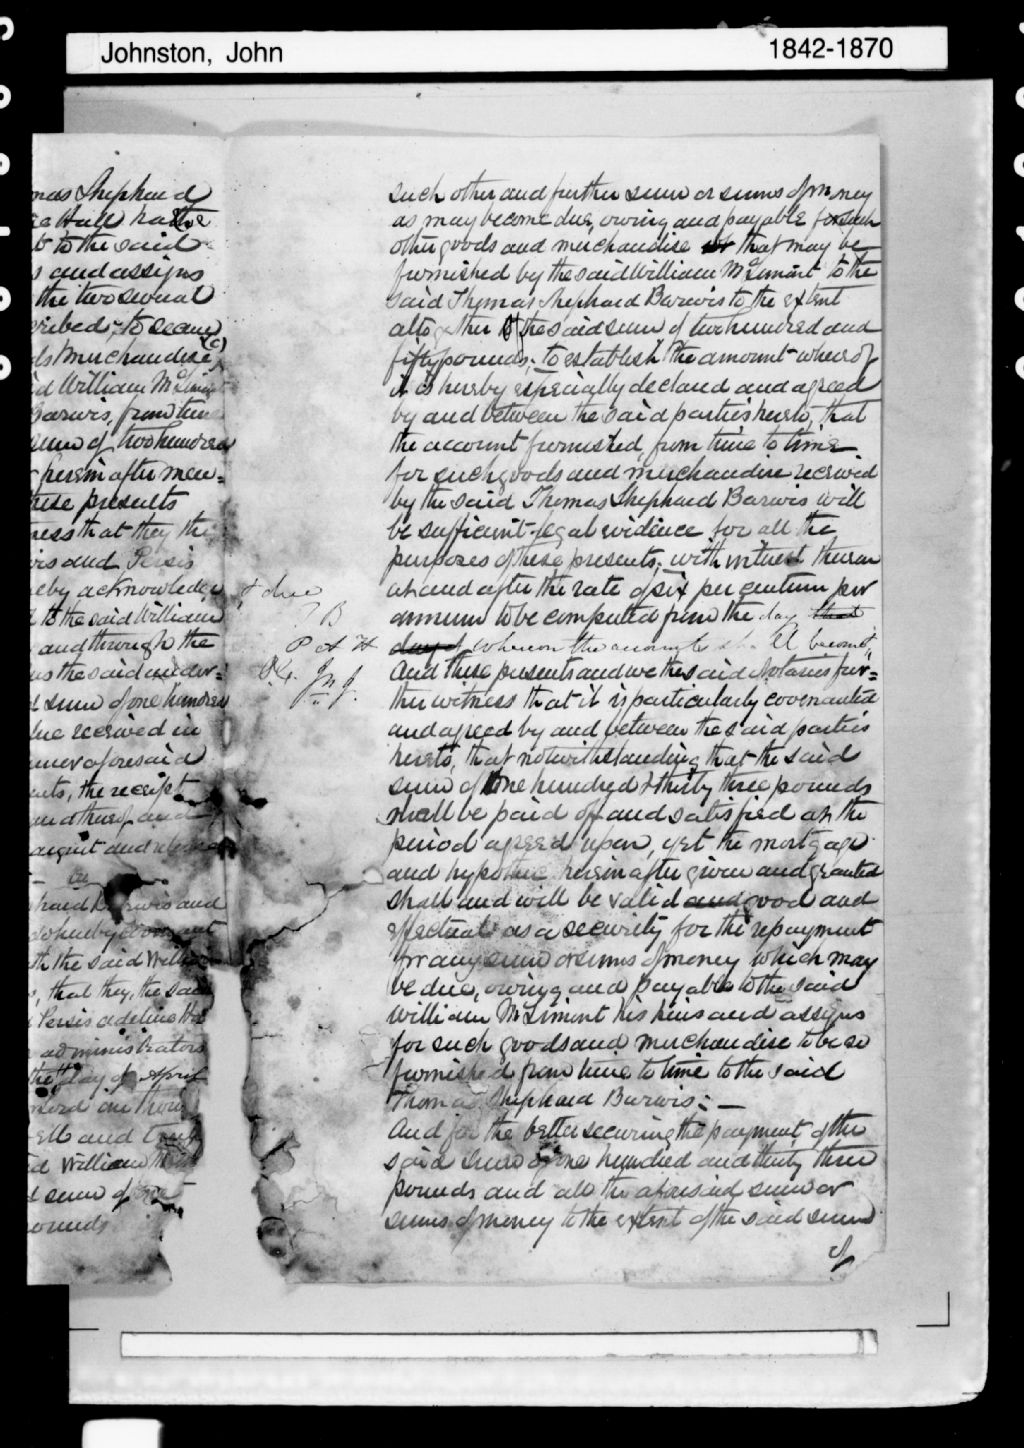 Johnston, John
1842-1870
mas Shephard
Hall ha the
to the said
s and assigns
the two several
cribed; to secure
(c)
ds merchandise
id William McLimint
Barwis, from time
sum of two hundred
herein after men=
these presents
ness that they the
is and Persis
reby acknowledge
d to the said William
and through the
us the said under=
d sum of one hundred
received in
aforesaid
ents, the receipt
and thereof and
acquit and
hard Barwis and
do hereby covenant
th the said William
s, that they, the said
Persis adeline
administrators
the day of April
lord one thou
and
ed William
d sum of one
pounds
such other and further sum or sums of money
as may become due, owing and payable for such
other goods and merchandise that may be
furnished by the said William McLimint to the
said Thomas Shephard Barwis to the extent
altogether of the said sum of two hundred and
fifty pounds; to establish the amount whereof
it is hereby especially declared and agreed
by and between the said parties hereto, that
the account furnished, from time to time
for such goods and merchandise received
by the said Thomas Shephard Barwis will
be sufficient legal evidence for all the
purposes of these presents; with interest thereon
+ due
at and after the rate of six per centum per
T B
annum to be computed from the day that
P A H
day of whereon the accounts shall become
J n J.
And these presents and we the said Notaries fur=
ther witness that it is particularly covenanted
and agreed by and between the said parties
hereto, that notwithstanding that the said
sum of One hundred & thirty three pounds
shall be paid off and satisfied at the
period agreed upon, yet the mortgage
and hypothec herein after given and granted
shall and will be valid and good and
effectual as a security for the repayment
for any sum or sums of money which may
be due, owing and payable to the said
William McLimint his heirs and assigns
for such goods and merchandise to be so
furnished from time to time to the said
Thomas Shephard Barwis; —
And for the better securing the payment of the
said sum of one hundred and thirty three
pounds and all the aforesaid sum or
sums of money to the extent of the said sum
of